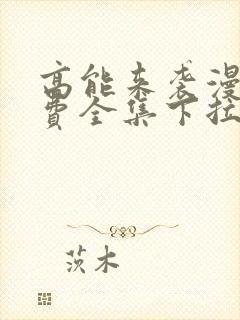 高能来袭漫
费全集下拉
茨木